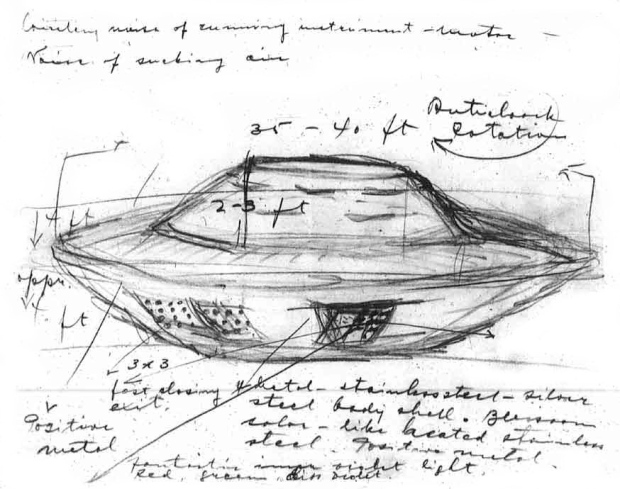 noise of running instrument - motor -
Noise of sucking air
Anticlock
35 - 40 ft
rotation
2-3 ft
4 ft
appr.
4 ft
3x3
fast closing
exit.
Metal - stainless steel - silver
steel body shell.
color - like heated stainless
steel. Positive metal.
Positive
metal
violet light.
Red, green, violet.